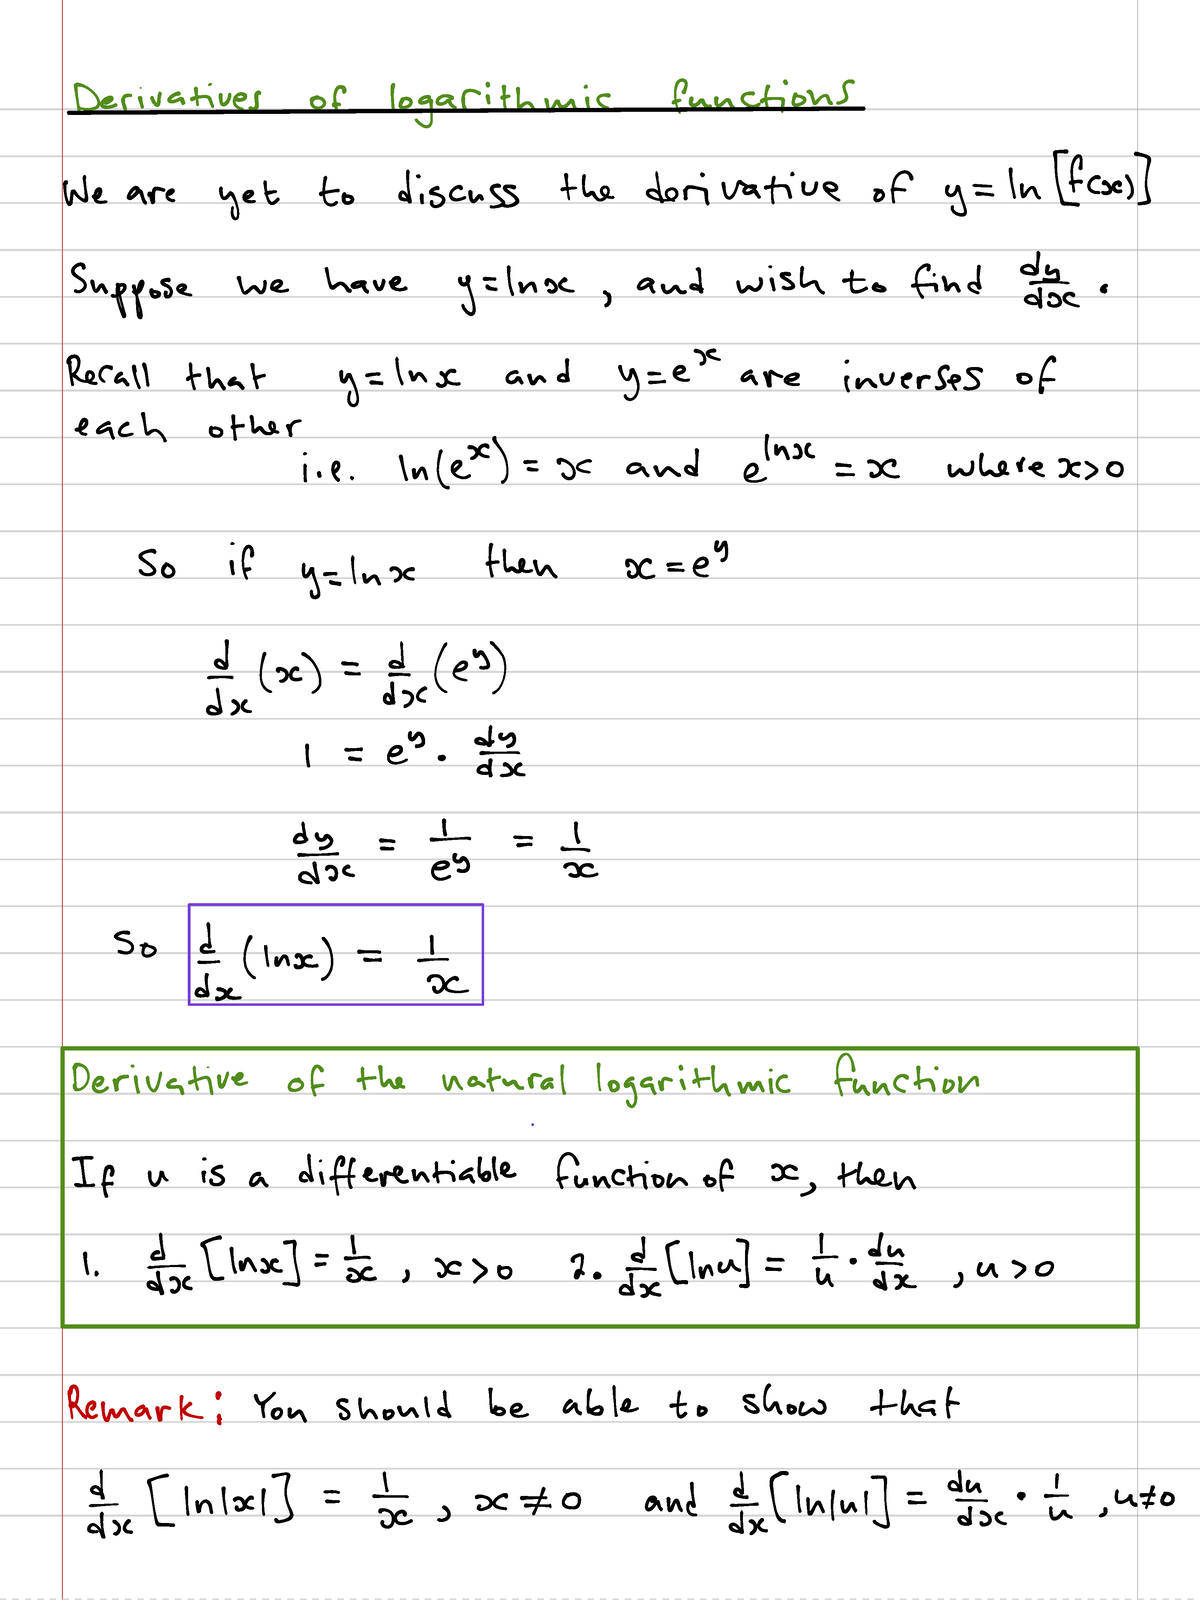 Derivatives of logarithmic functions
We are yet to discuss the derivative of y = ln [f(x)]
Suppose we have y = lnx, and wish to find dy/dx.
Recall that y = lnx and y = e^x are inverses of
each other
i.e. ln(e^x) = x and e^lnx = x where x>0
So if y = lnx then x = e^y
d/dx (x) = d/dx (e^y)
1 = e^y . dy/dx
dy/dx = 1/e^y = 1/x
So d/dx (lnx) = 1/x
Derivative of the natural logarithmic function
If u is a differentiable function of x, then
1. d/dx [lnx] = 1/x, x>0 2. d/dx [lnu] = 1/u · du/dx, u>0
Remark: You should be able to show that
d/dx [ln|x|] = 1/x, x≠0 and d/dx [ln|u|] = du/dx · 1/u, u≠0